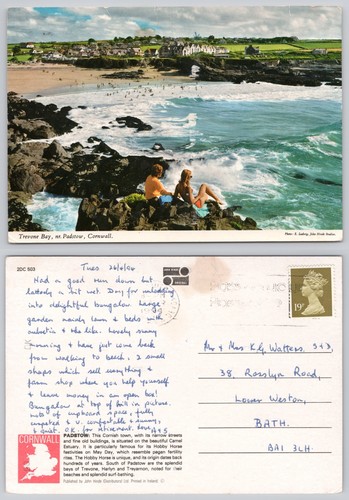 Trevone Bay, nr. Padstow, Cornwall.
Photo: E. Ludwig, John Hinde Studios.
2DC 503
Tues 26/6/84
Had a good run down but
latterly a bit wet. Dry for unloading
into delightful bungalow. Large
garden mainly lawn & beds with
& the like. Lovely sunny
morning & have just come back
from walking to beach, 2 small
shops which sell everything &
farm shop where you help yourself
& leave money in an open box!
Bungalow at top of hill in picture.
of cupboard space, fully
carpeted & v. comfortable & sunny,
& quiet. O.K. for retirement,
19P
Mr & Mrs K.G. Watters.
38, Rosslyn Road,
Lower Weston,
BATH.
BA1 3LH.
CORNWALL
PADSTOW: This Cornish town, with its narrow streets
and fine old buildings, is situated on the beautiful Camel
Estuary. It is particularly famous for its Hobby Horse
festivities on May Day, which resemble pagan fertility
rites. The Hobby Horse is unique and its origin dates back
hundreds of years. South of Padstow are the splendid
bays of Trevone, Harlyn and Treyarnon, noted for their
beaches and splendid surf-bathing.